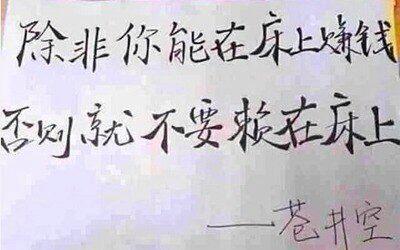 除非你能在床上赚钱
否则就不要赖在床上
——苍井空